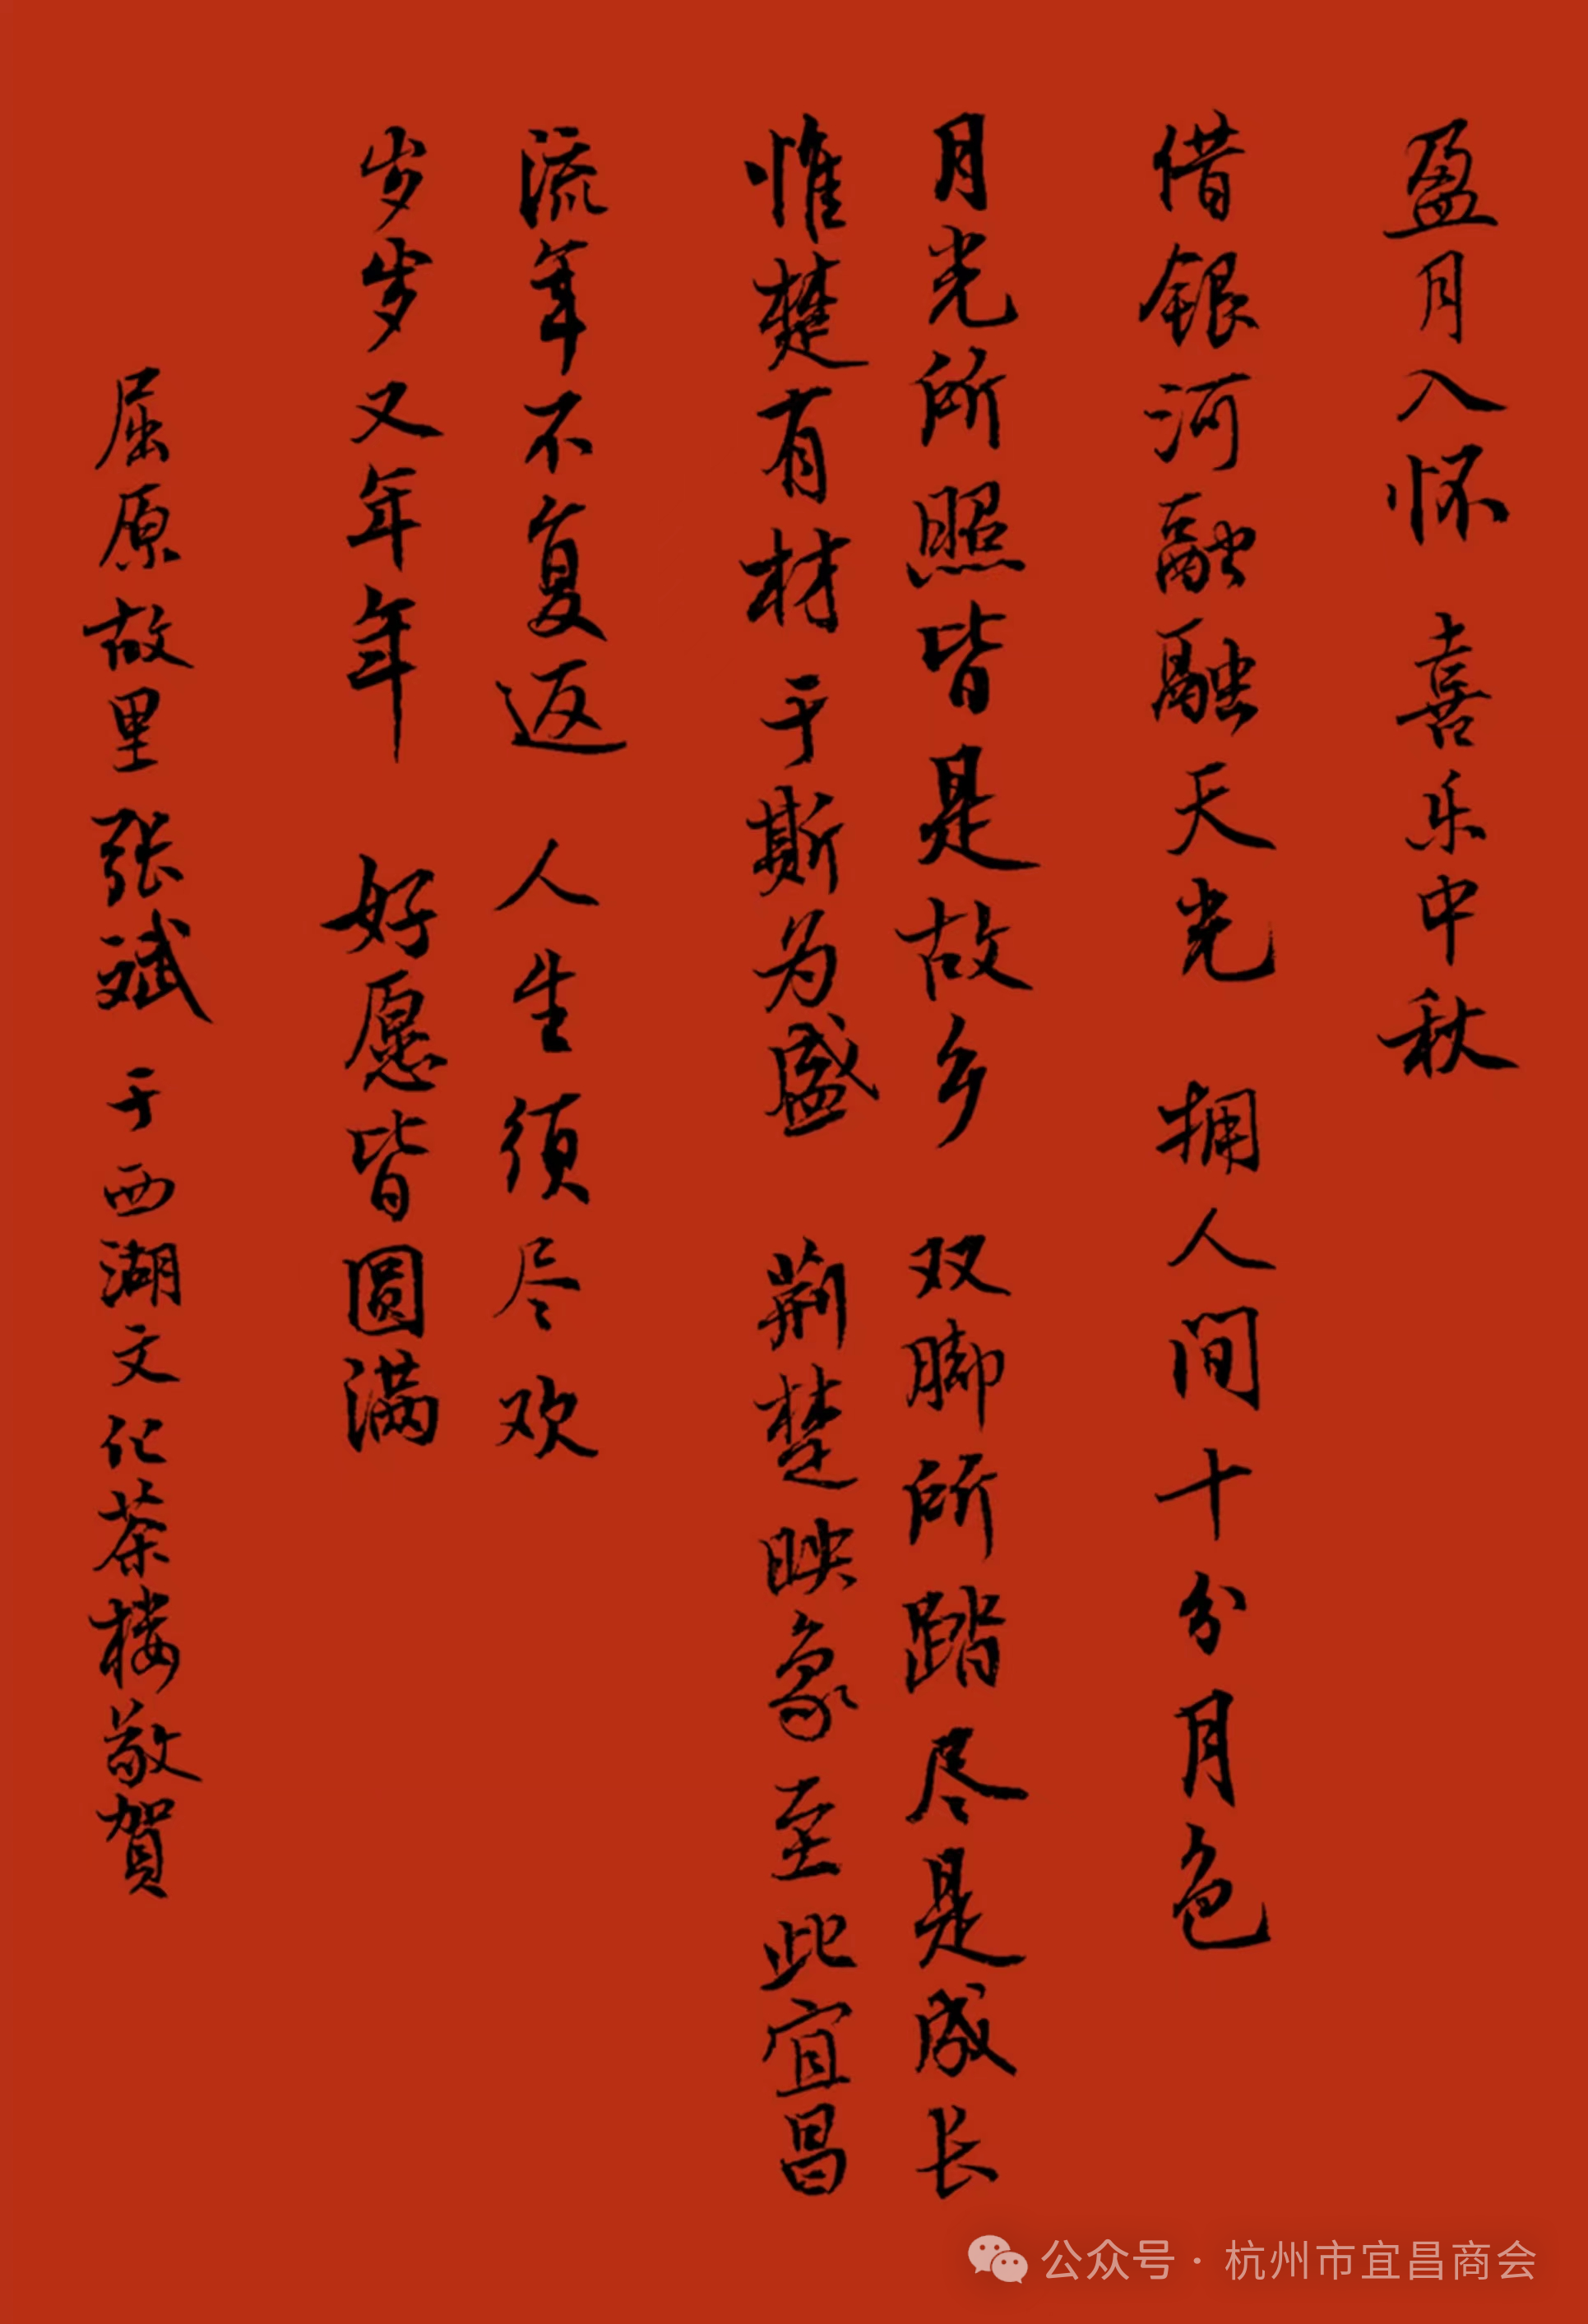 盈月入怀 喜乐中秋
借银河融融天光 拥人间十分月色
月光所照皆是故乡 双脚所踏尽是成长
惟楚有材于斯为盛 荆楚映象至此宜昌
流年不复返 人生须尽欢
岁岁又年年 好愿皆圆满
屈原故里张斌 于西湖文化茶楼敬賀
公众号·杭州市宜昌商会